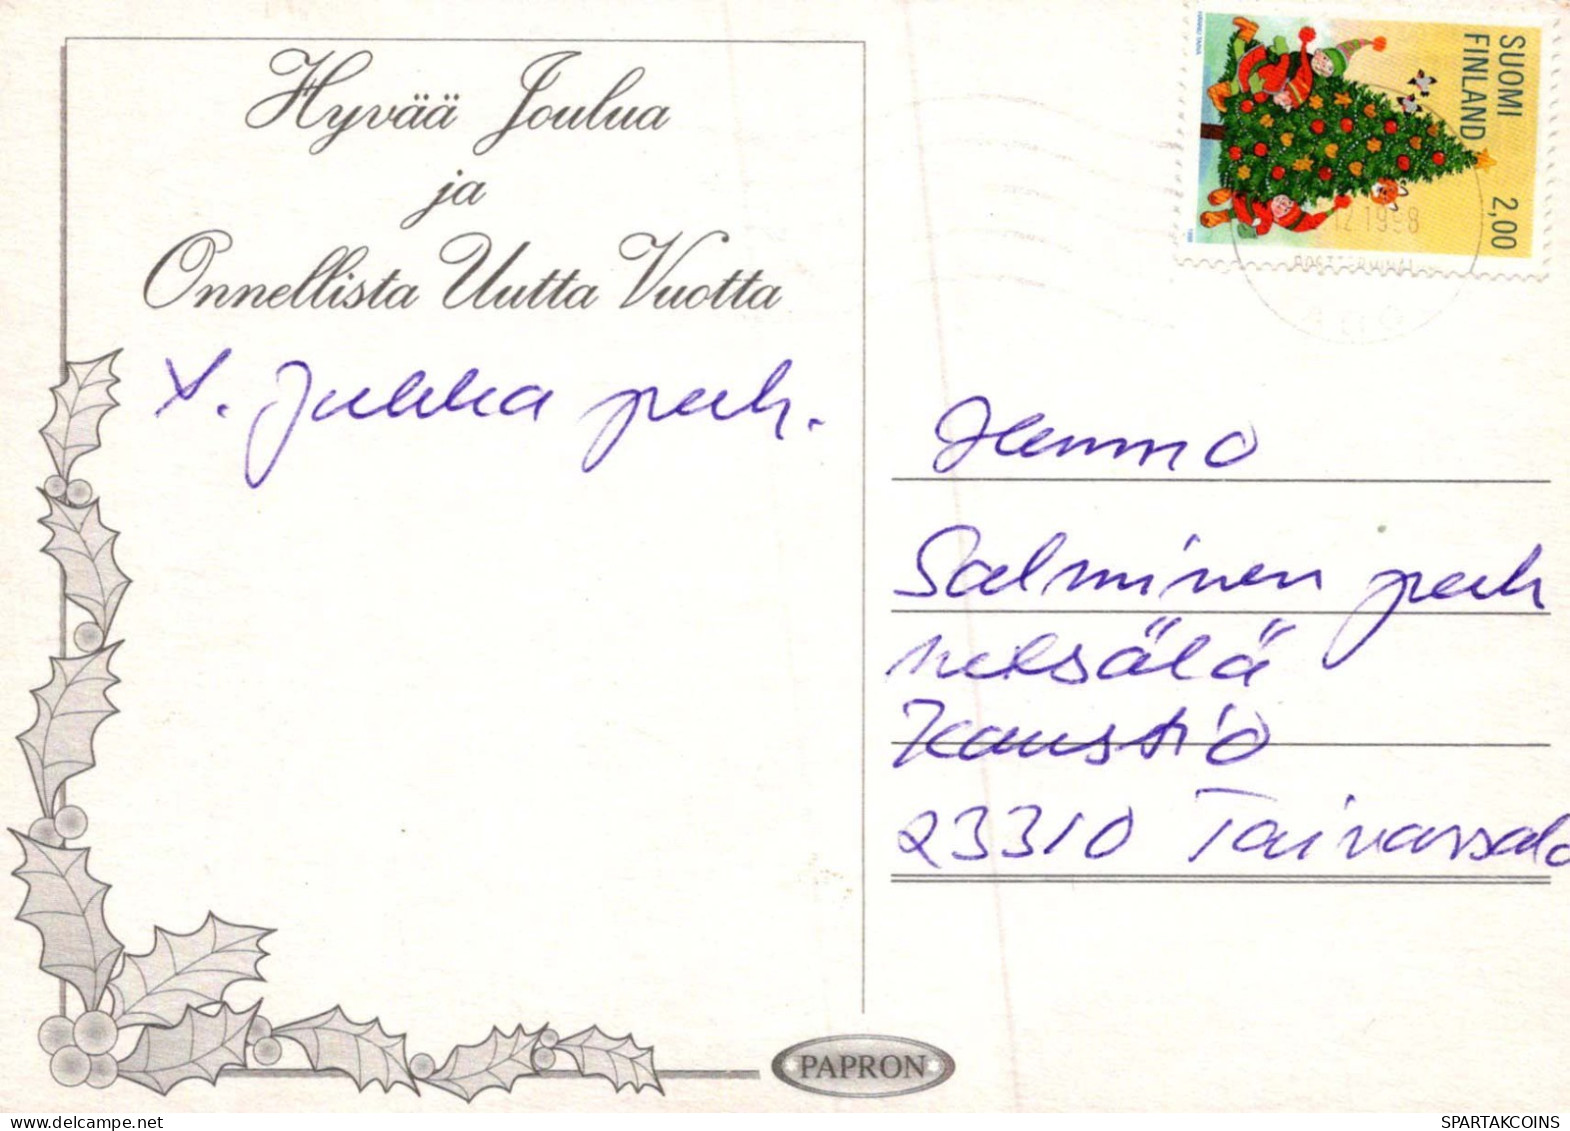 Hyvää Joulua
ja
Onnellista Uutta Vuotta
X. Jukka perh.
SUOMI
FINLAND
2,00
HANNU TAINA
12.1998
Hanno
Salminen perh
Kaustio
23310 Taivassalo
PAPRON
www.delcampe.net
SPARTAKCOINS